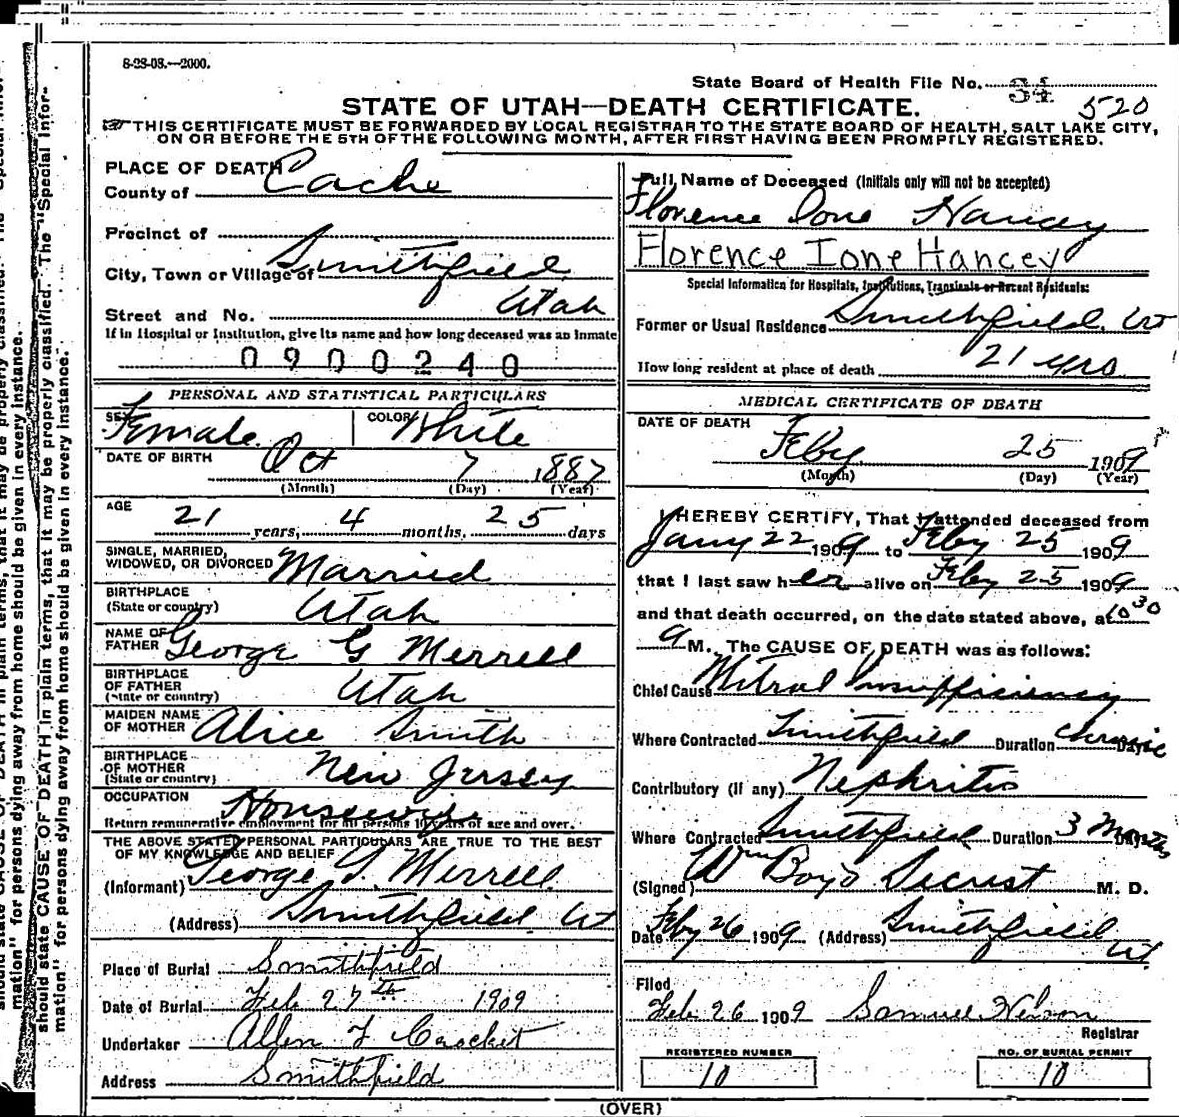 8-28-08.—2000.
State Board of Health File No. 34 520
STATE OF UTAH—DEATH CERTIFICATE.
THIS CERTIFICATE MUST BE FORWARDED BY LOCAL REGISTRAR TO THE STATE BOARD OF HEALTH, SALT LAKE CITY,
ON OR BEFORE THE 5TH OF THE FOLLOWING MONTH, AFTER FIRST HAVING BEEN PROMPTLY REGISTERED.
PLACE OF DEATH
County of Cache
Precinct of
City, Town or Village of Smithfield
Street and No. Utah
If in Hospital or Institution, give its name and how long deceased was an Inmate
0900240
PERSONAL AND STATISTICAL PARTICULARS
SEX Female COLOR White
DATE OF BIRTH Oct 7 1887
(Month) (Day) (Year)
AGE
21 years, 4 months, 25 days
SINGLE, MARRIED,
WIDOWED, OR DIVORCED Married
BIRTHPLACE
(State or country) Utah
NAME OF
FATHER George G Merrell
BIRTHPLACE
OF FATHER
(State or country) Utah
MAIDEN NAME
OF MOTHER Alice Smith
BIRTHPLACE
OF MOTHER
(State or country) New Jersey
OCCUPATION Housewife
Return remunerative employment for all persons 10 years of age and over.
THE ABOVE STATED PERSONAL PARTICULARS ARE TRUE TO THE BEST
OF MY KNOWLEDGE AND BELIEF
(Informant) George G. Merrell
(Address) Smithfield Ut
Place of Burial Smithfield
Date of Burial Feb 27th 1909
Undertaker Allen F Crocket
Address Smithfield
Full Name of Deceased (Initials only will not be accepted)
Florence Ione Hancey
Florence Ione Hancey
Special Information for Hospitals, Institutions, Transients or Recent Residents:
Former or Usual Residence Smithfield, Ut
How long resident at place of death 21 yrs
MEDICAL CERTIFICATE OF DEATH
DATE OF DEATH
Feby 25 1909
(Month) (Day) (Year)
I HEREBY CERTIFY, That I attended deceased from
Jany 22 1909 to Feby 25 1909
that I last saw her alive on Feby 25 1909
and that death occurred, on the date stated above, at 10 30
a M. The CAUSE OF DEATH was as follows:
Chief Cause Mitral Insufficiency
Where Contracted Smithfield Duration Chronic Days
Contributory (if any) Nephritis
Where Contracted Smithfield Duration 3 Months Days
(Signed) Wm Boyd Secrist M. D.
Date Feby 26 1909 (Address) Smithfield
Ut
Filed
Feb 26 1909 Samuel Nelson
Registrar
REGISTERED NUMBER
10
NO. OF BURIAL PERMIT
10
(OVER)
should state CAUSE OF DEATH in plain terms, that it may be properly classified. The "Special Infor-
mation" for persons dying away from home should be given in every instance.